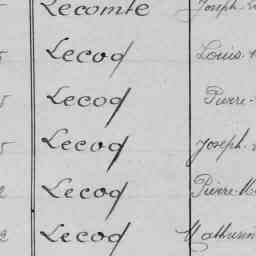 Lecomte Joseph
5 Lecoq Louis
Lecoq Pierre-
5 Lecoq Joseph-
2 Lecoq Pierre-M
2 Lecoq Mathurin